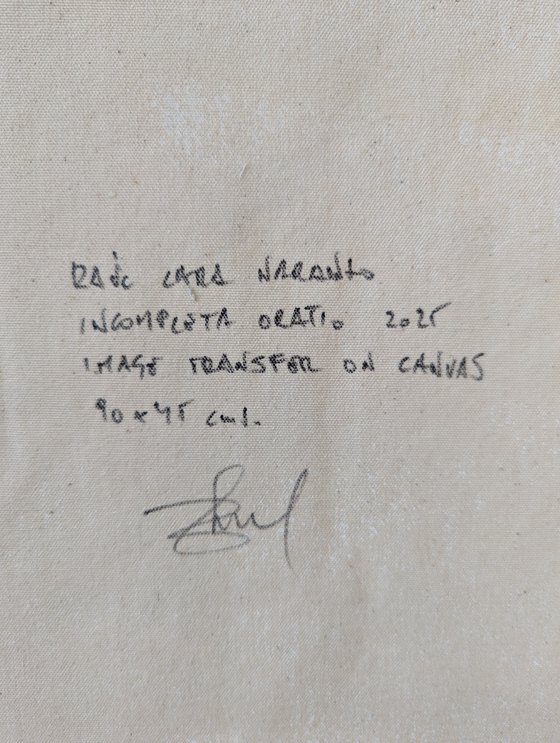 RAÚL LARA NARANJO
INCOMPLETA ORATIO 2025
IMAGE TRANSFER ON CANVAS
90 x 45 cms.